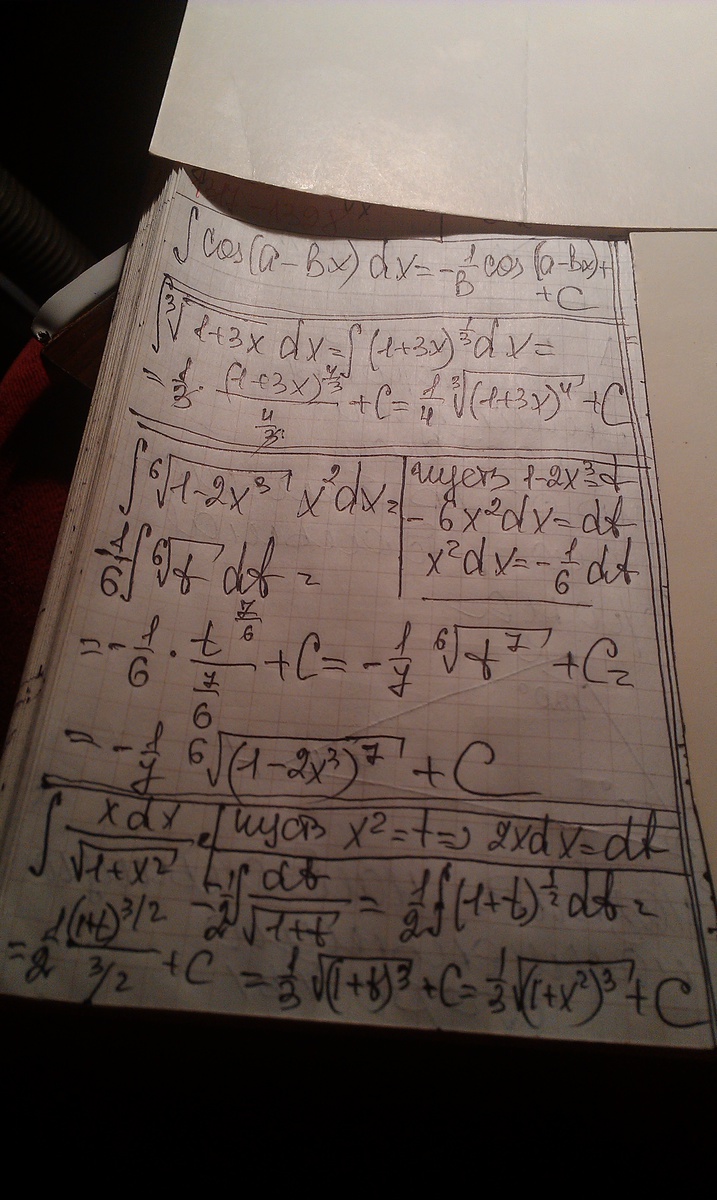 ∫ cos(a−Bx) dx = −1/B cos(a−Bx) +
+ C
∫ ∛(1+3x) dx = ∫ (1+3x)^(1/3) dx =
= 1/3 · (1+3x)^(4/3) / (4/3) + C = 1/4 ∛((1+3x)^4) + C
∫ ⁶√(1−2x³) x² dx =
пусть 1−2x³=t
−6x²dx = dt
x²dx = −1/6 dt
−1/6 ∫ ⁶√t dt =
= −1/6 · t^(7/6) / (7/6) + C = −1/7 ⁶√(t⁷) + C =
= −1/7 ⁶√((1−2x³)⁷) + C
∫ xdx / √(1+x²) =
пусть x² = t ⇒ 2xdx = dt
= 1/2 ∫ dt / √(1+t) = 1/2 ∫ (1+t)^(1/2) dt =
= 1/2 (1+t)^(3/2) / (3/2) + C = 1/3 √((1+t)³) + C = 1/3 √((1+x²)³) + C